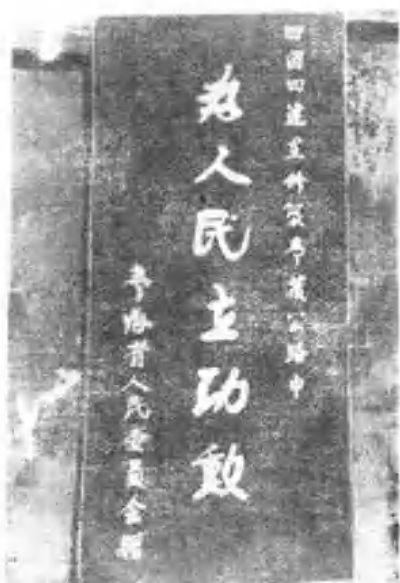 四团四連在修筑青藏公路中
为人民立功勛
青海省人民委員会贈